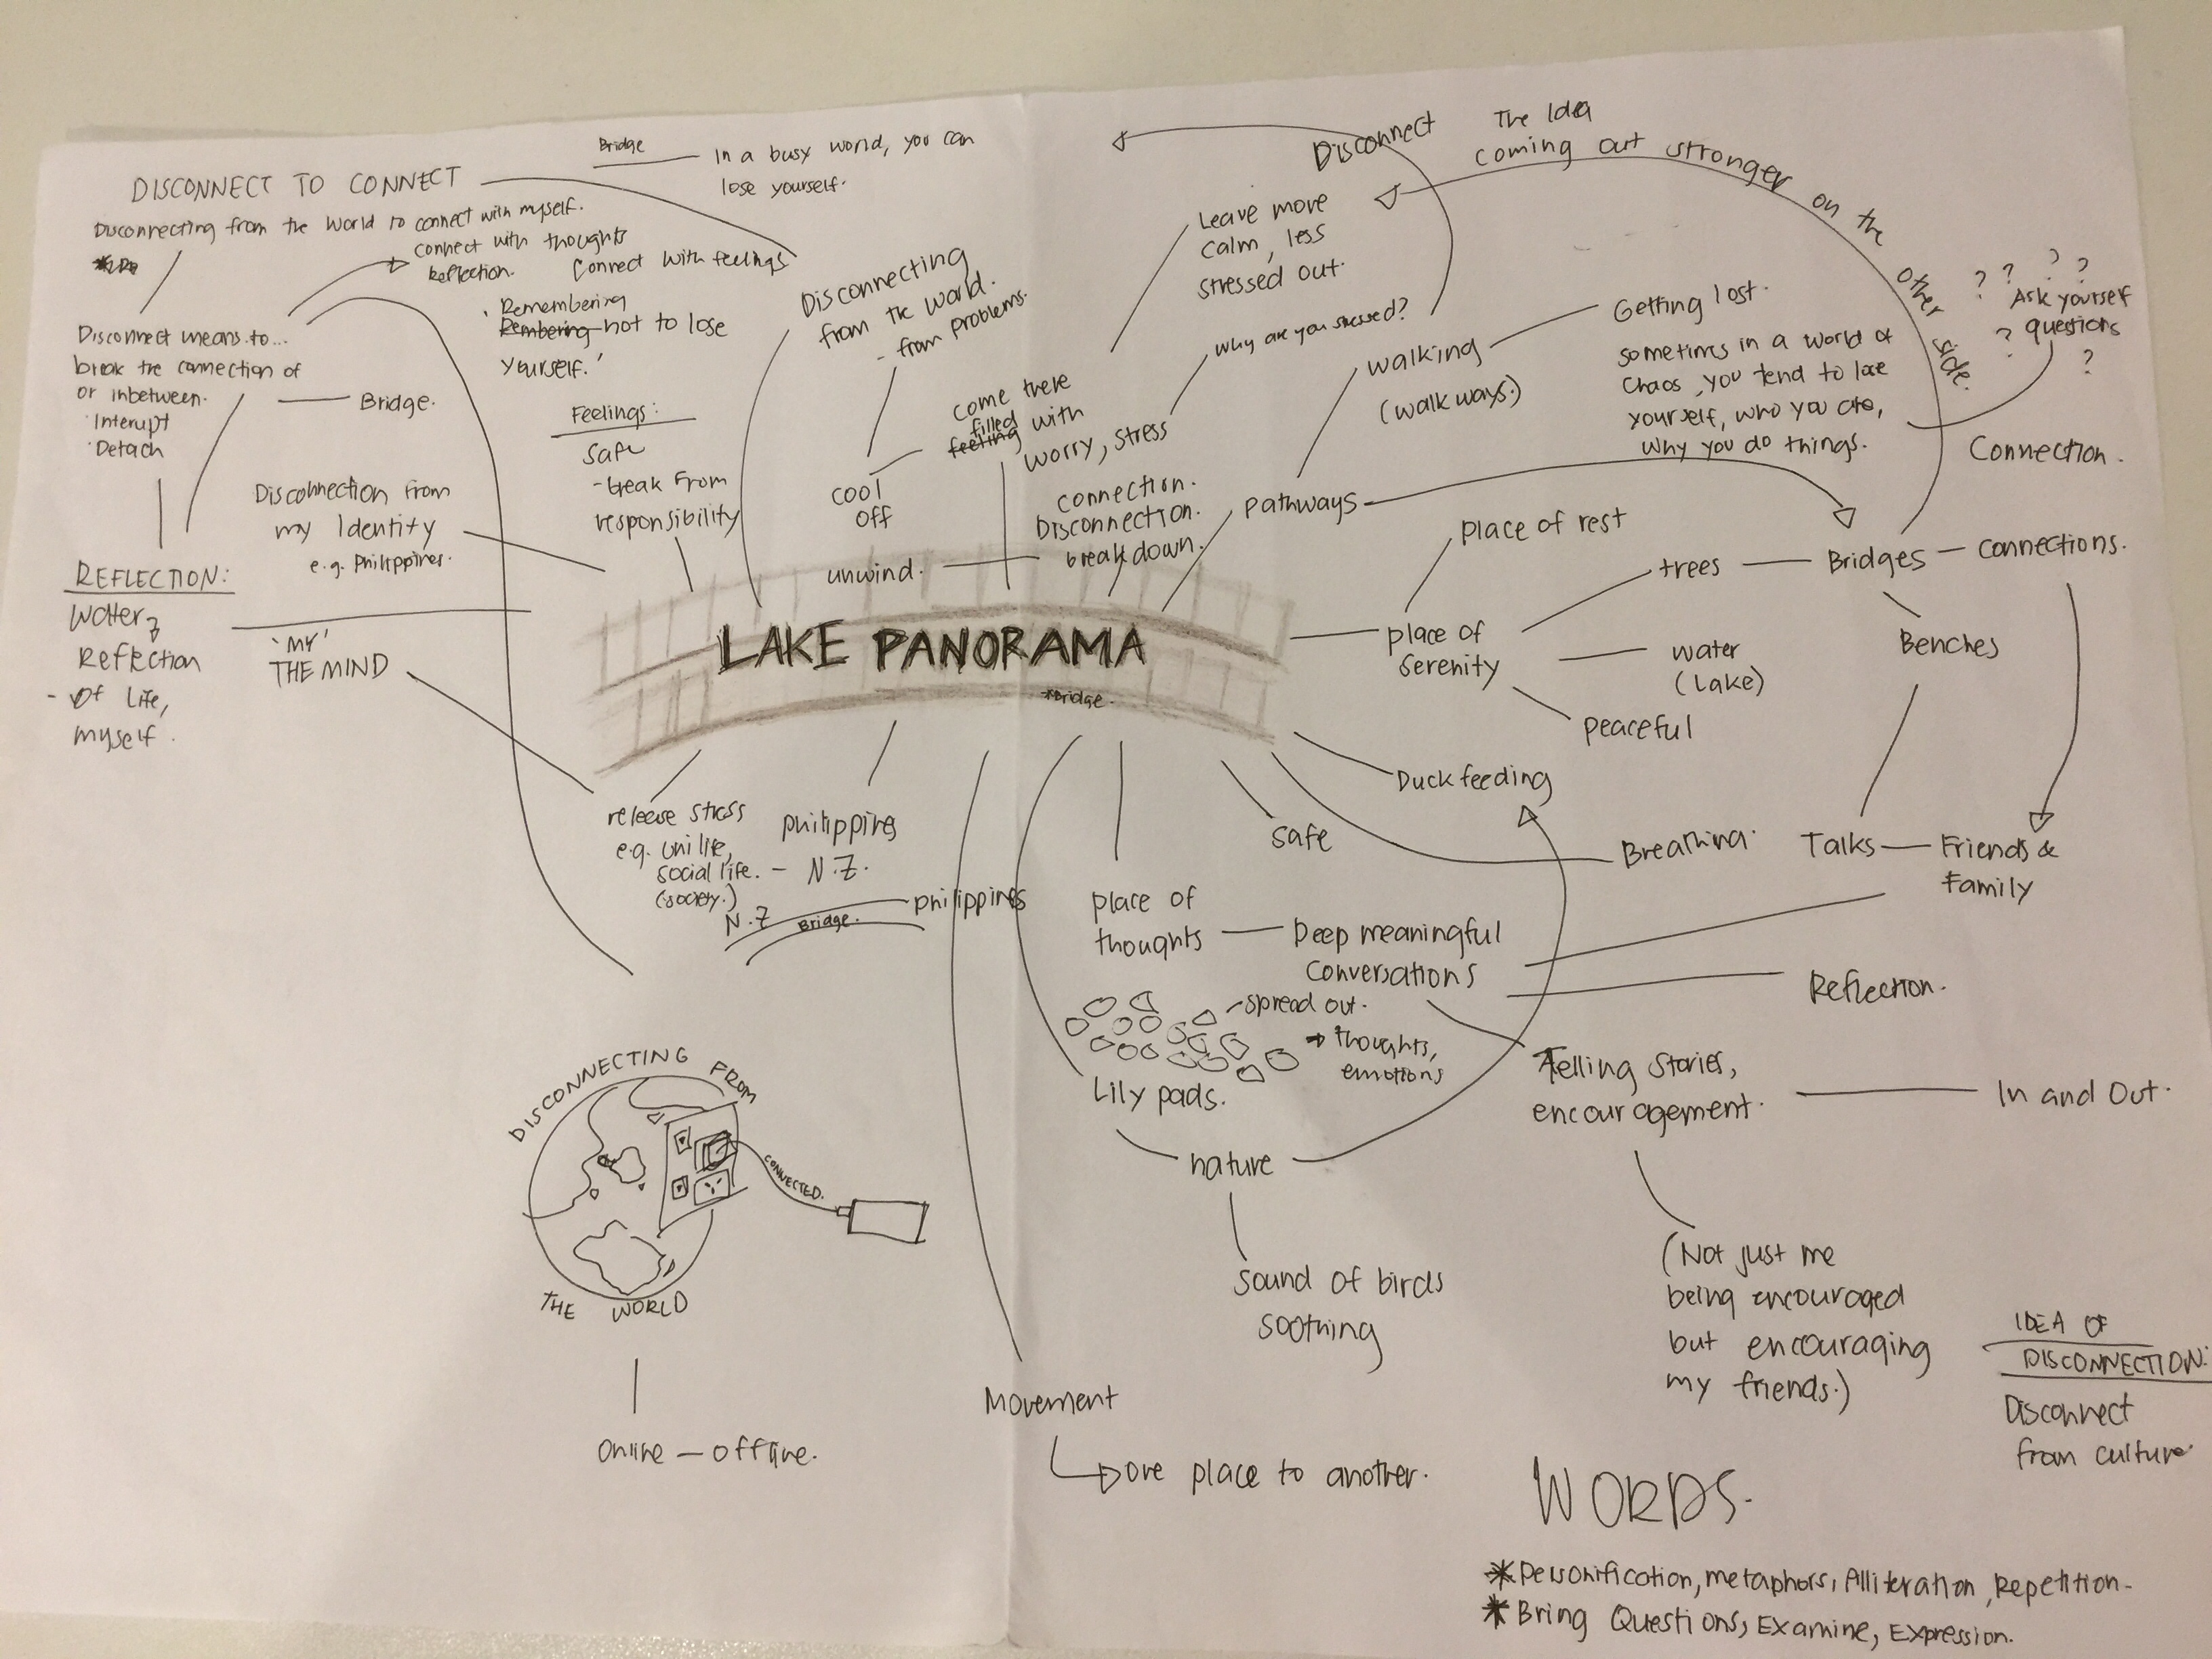 DISCONNECT TO CONNECT
Disconnecting from the world to connect with myself.
connect with thoughts
Reflection.
Connect with feelings
Remembering
Rembering not to lose
yourself.'
Bridge
In a busy world, you can
lose yourself.
Disconnect means to...
break the connection of
or inbetween.
Interupt
Detach
Bridge.
Disconnection from
my Identity
e.g. Philippines.
REFLECTION:
Water,
Reflection
- Of Life,
myself.
'MY'
THE MIND
Feelings:
safe
- break from
responsibility
Disconnecting
from the world.
- from problems.
cool
off
come there
filled
feeling with
worry, stress
unwind.
connection.
Disconnection.
break down.
Leave more
calm, less
stressed out.
why are you stressed?
Disconnect
The Idea
coming out stronger on the other side.
walking
(walkways.)
Getting lost.
sometimes in a world of
chaos, you tend to lose
yourself, who you are,
why you do things.
? ? ? ?
Ask yourself
? questions
?
Connection.
pathways
place of rest
trees
Bridges
connections.
Benches
LAKE PANORAMA
*Bridge.
place of
serenity
water
(Lake)
peaceful
Duck feeding
safe
Breathing.
Talks
Friends &
Family
release stress
e.g. uni life,
social life.
(society.)
philippines
- N.Z.
N.Z
Bridge.
philippines
place of
thoughts
Deep meaningful
conversations
Reflection.
- spread out.
thoughts,
emotions
Lily pads.
Telling stories,
encouragement.
In and Out.
nature
sound of birds
soothing
(Not just me
being encouraged
but encouraging
my friends.)
DISCONNECTING FROM
CONNECTED.
THE WORLD
online - offline.
Movement
one place to another.
IDEA OF
DISCONNECTION:
Disconnect
from culture
WORDS.
* Personification, metaphors, Alliteration, Repetition.
* Bring Questions, Examine, Expression.